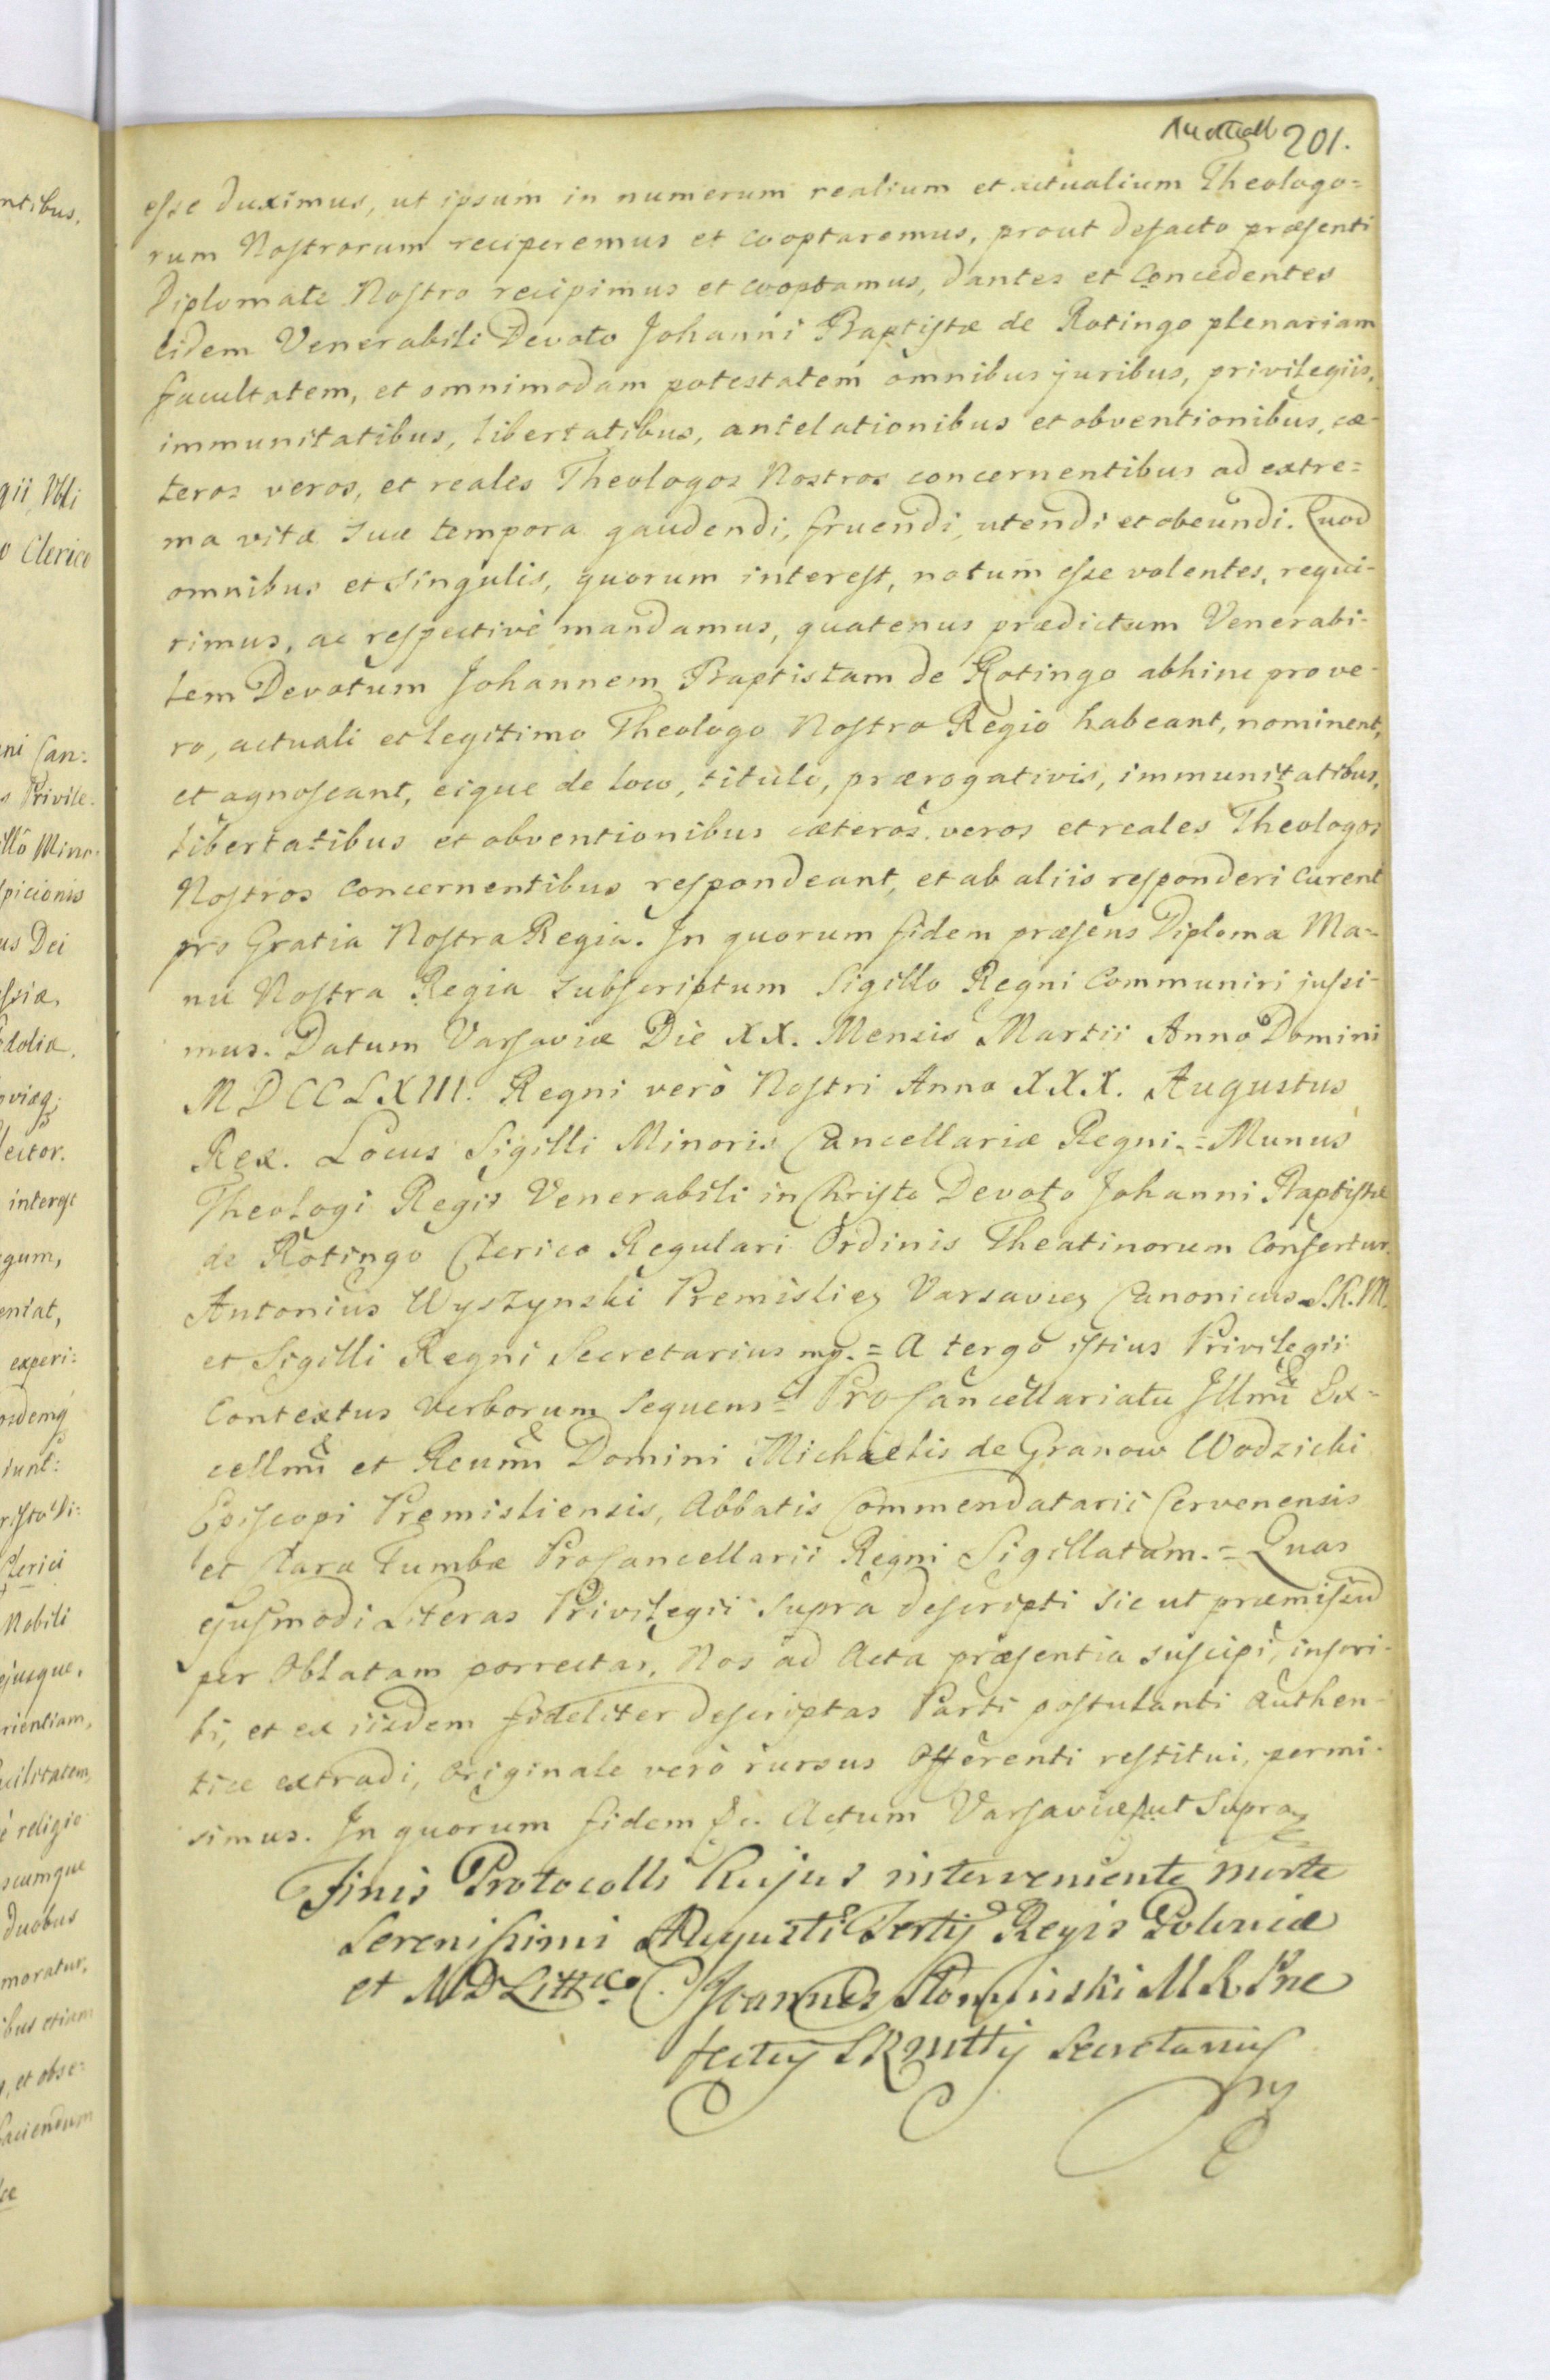 201.
esse duximus, ut ipsum in numerum realium et actualium Theologo=
rum Nostrorum reciperemus et cooptaremus, prout defacto præsenti
Diplomate Nostro recipimus et cooptamus, dantes et Concedentes
eidem Venerabili Devoto Johanni Baptistæ de Rotingo plenariam
facultatem, et omnimodam potestatem omnibus juribus, privilegiis,
immunitatibus, libertatibus, antelationibus et obventionibus, cæ-
teros veros, et reales Theologos Nostros concernentibus ad extre=
ma vitæ suæ tempora gaudendi, fruendi, utendi et obeundi. Quod
omnibus et singulis, quorum interest, notum esse volentes, requi-
rimus, ac respectivè mandamus, quatenus prædictum Venerabi-
lem Devotum Johannem Baptistam de Rotingo abhinc pro ve-
ro, actuali et legitimo Theologo Nostro Regio habeant, nominent,
et agnoscant, eique de loco, titulo, prærogativis, immunitatibus,
libertatibus et obventionibus cæteros veros et reales Theologos
Nostros Concernentibus respondeant, et ab aliis responderi Curent
pro Gratia Nostra Regia. In quorum fidem præsens Diploma Ma=
nu Nostra Regia subscriptum Sigillo Regni Communiri jussi-
mus. Datum Varsaviæ Die XX. Mensis Martii Anno Domini
MDCCLXIII. Regni verò Nostri Anno XXX. Augustus
Rex. Locus Sigilli Minoris Cancellariæ Regni.= Munus
Theologi Regis Venerabili in Christo Devoto Johanni Baptistæ
de Rotingo Clerico Regulari Ordinis Theatinorum Confertur.
Antonius Wyszynski Premisliey Varsaviey Canonicus S.R.M.
et Sigilli Regni Secretarius mp.= A tergo istius Privilegii
Contextus Verborum Sequens= ProCancellariatu Illmi Ex=
cellmi et Reumi Domini Michaelis de Granow Wodzicki
Episcopi Premisliensis, Abbatis Commendatarii Cervenensis
et Clara Tumbæ ProCancellarii Regni Sigillatum.= Quas
ejusmodi Literas Privilegii supra descripti sic ut præmissum
per Oblatam porrectas, Nos ad Acta præsentia suscipi, inscri-
bi, et ex iisdem fideliter descriptas Parti postulanti authen-
tice extradi, Originale verò rursus Offerenti restitui, permi-
simus. In quorum fidem &c. Actum Varsaviæ, ut Supra
Finis Protocolli hujus interveniente morte
Serenissimi Augusti Tertij Regis Poloniæ
et MD Littæ. Joannes Słominski MR Pne
Secretarius
mp